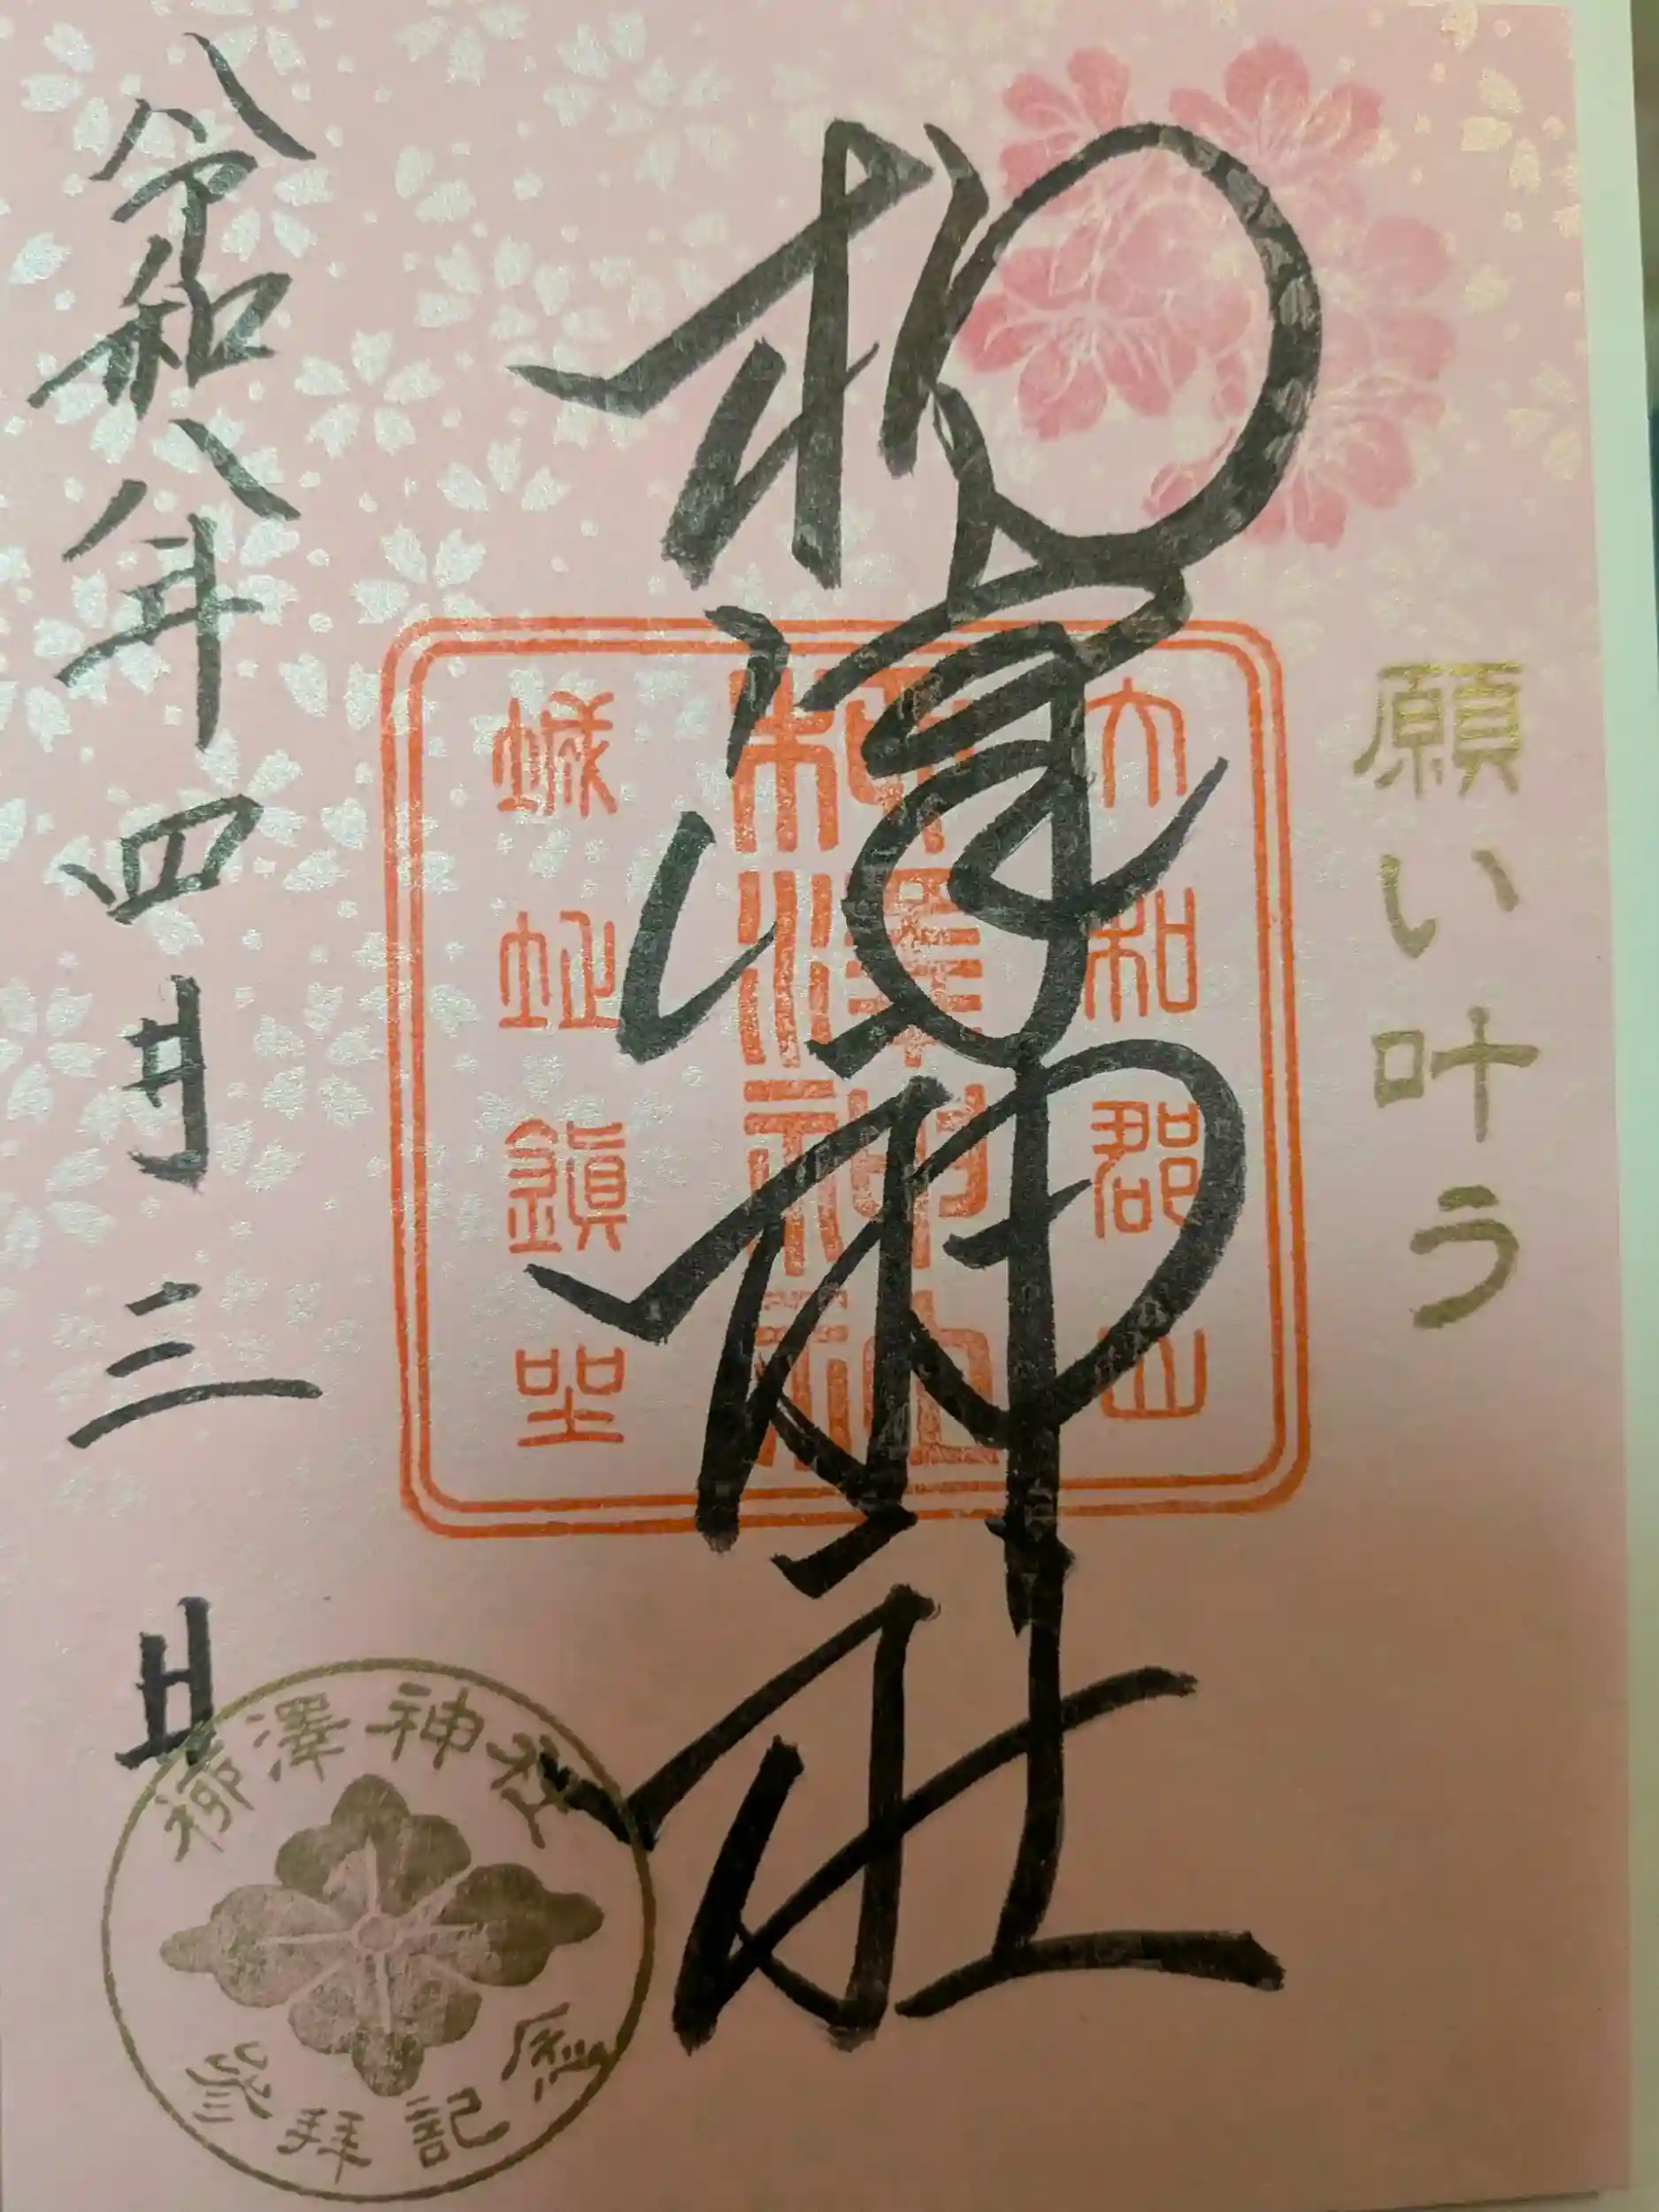 願い叶う
柳澤神社
大和郡山
柳澤神社
城址鎮坐
令和八年四月三日
柳澤神社
参拝記念